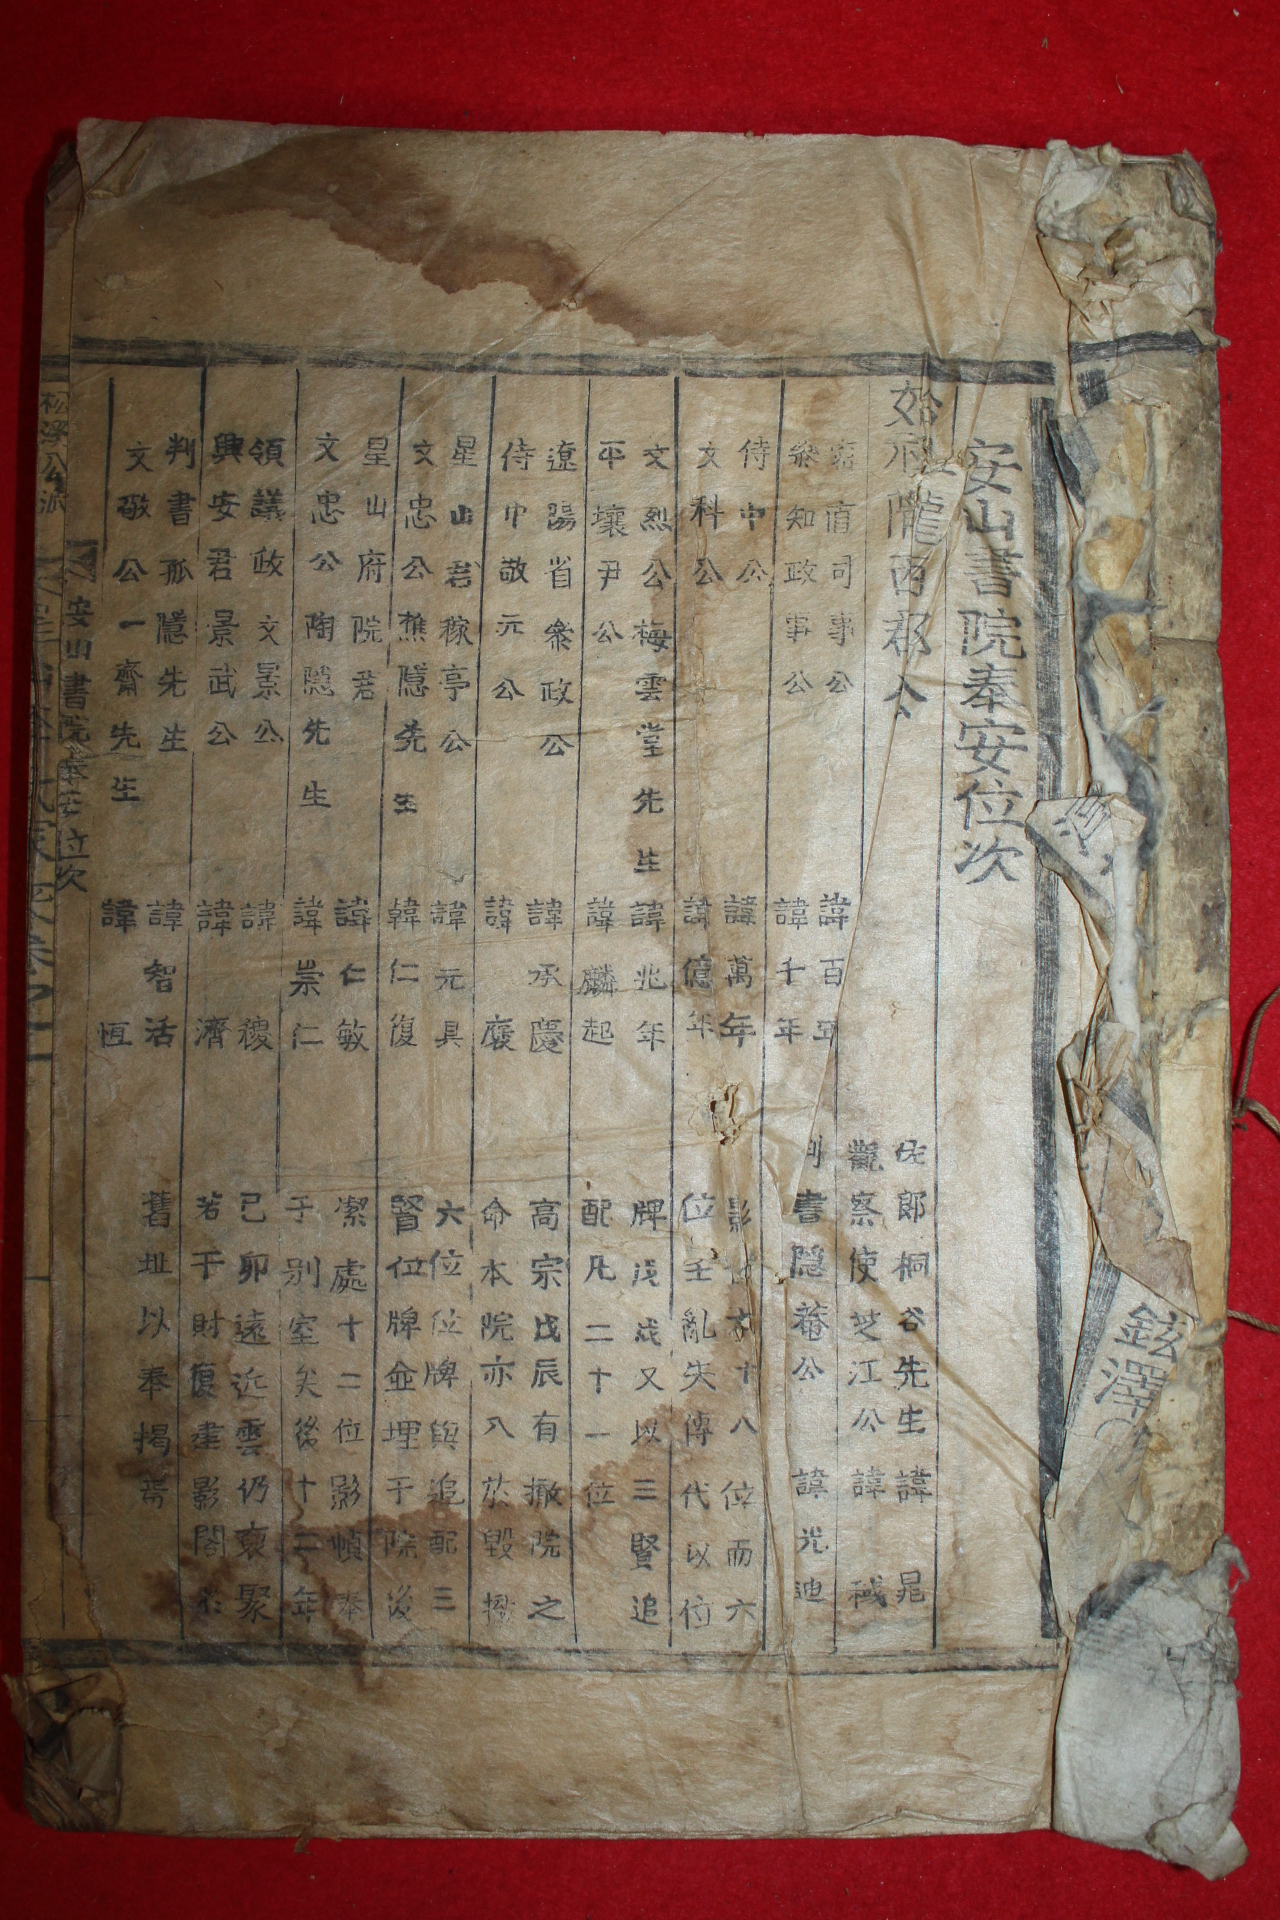 安山書院奉安位次
始祖隴西郡公
佐郎桐谷先生 諱 晁
密直司事公 諱百年
觀察使芝江公 諱 㦿
參知政事公 諱千年
判書隱菴公 諱光迪
侍中公 諱萬年
十八位而六
文科公 諱億年
位壬亂失傳代以位
文烈公梅雲堂先生 諱兆年
牌戊戌又以三賢追
平壤尹公 諱麟起
配凡二十一位
遼陽省參政公 諱承慶
高宗戊辰有撤院之
侍中敬元公 諱褒
命本院亦入於毀撤
星山君稼亭公 諱元具
六位位牌與追配三
文忠公樵隱先生 諱仁復
賢位牌並埋于院後
星山府院君 諱仁敏
潔處十二位影幀奉
文忠公陶隱先生 諱崇仁
于別室矣後十二年
領議政文景公 諱稷
己卯遠近雲仍裒聚
興安君景武公 諱濟
若干財復建影閣於
判書孤隱先生 諱智活
舊址以奉揭焉
文敬公一齋先生 諱恒
安山書院奉安位次
松溪公派
鉉澤